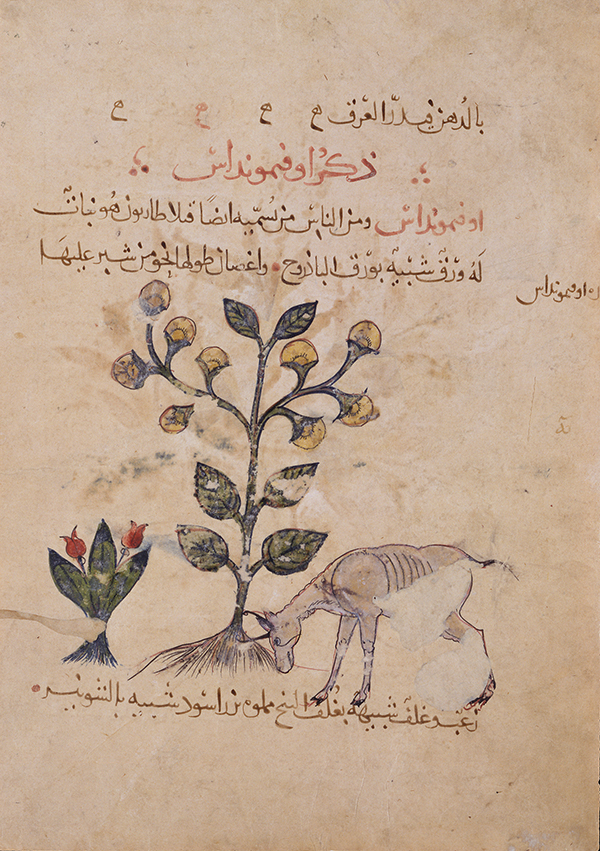 بالدُهن فيدرّ العَرَق ه ه ه ه
ذكر اوفيمونداس
اوفيمونداس ومن الناس من يُسمّيه ايضًا فيلاطاريون هو نبات
لَهُ ورق شبيه بورق الباذروج واغصان طولها نحو من شبر عليها
اوفيمونداس
زغب وغلف شبيهة بغلف البنج مملوه بزر اسود شبيه بالشونيز